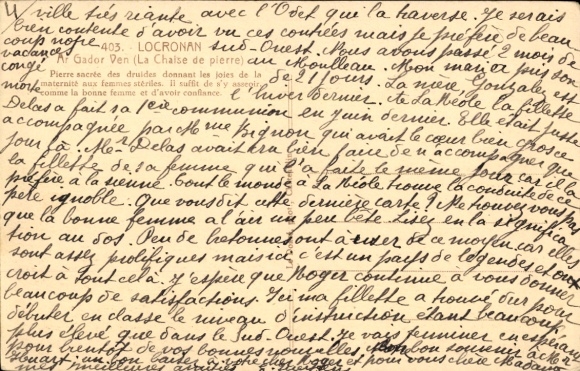 4/ ville très riante avec l'Odet qui la traverse. Je serais
bien contente d'avoir vu ces contrées mais je préfère de beau
coup notre
403. - LOCRONAN
Sud-Ouest. Nous avons passé 2 mois de
vacances
Ar Gador Ven (La Chaise de pierre)
au Moulleau. Mon mari a pris son
congé
Pierre sacrée des druides donnant les joies de la
maternité aux femmes stériles. Il suffit de s'y asseoir
comme la bonne femme et d'avoir confiance.
de 21 jours. La mère Gonzalez est
morte
l'hiver dernier. de La Réole la fillette
Delas a fait sa 1ère communion en juin dernier. Elle était juste
accompagnée par Mme Bignon qui avait le cœur bien gros ce
jour là. Mr Delas avait cru bien faire de n'accompagner que
la fillette de sa femme qui l'a faite le même jour car il la
préfère à la sienne. tout le monde à La Réole trouve la conduite de ce
père ignoble. Que vous dit cette dernière carte? Ne trouvez vous pas
que la bonne femme a l'air un peu bête. Lisez en la significa
tion au dos. Peu de bretonnes ont à user de ce moyen car elles
sont assez prolifiques mais ici c'est un pays de légendes et on
croit à tout celà. J'espère que Roger continue à vous donner
beaucoup de satisfactions. Ici ma fillette a trouvé dur pour
débuter en classe le niveau d'instruction étant beaucoup
plus élevé que dans le Sud-Ouest. Je vais terminer en espérant
pour bientôt de vos bonnes nouvelles. bon souvenir à Mr
un bon baiser à votre cher Roger et pour vous chère Madame
mes meilleures amitiés